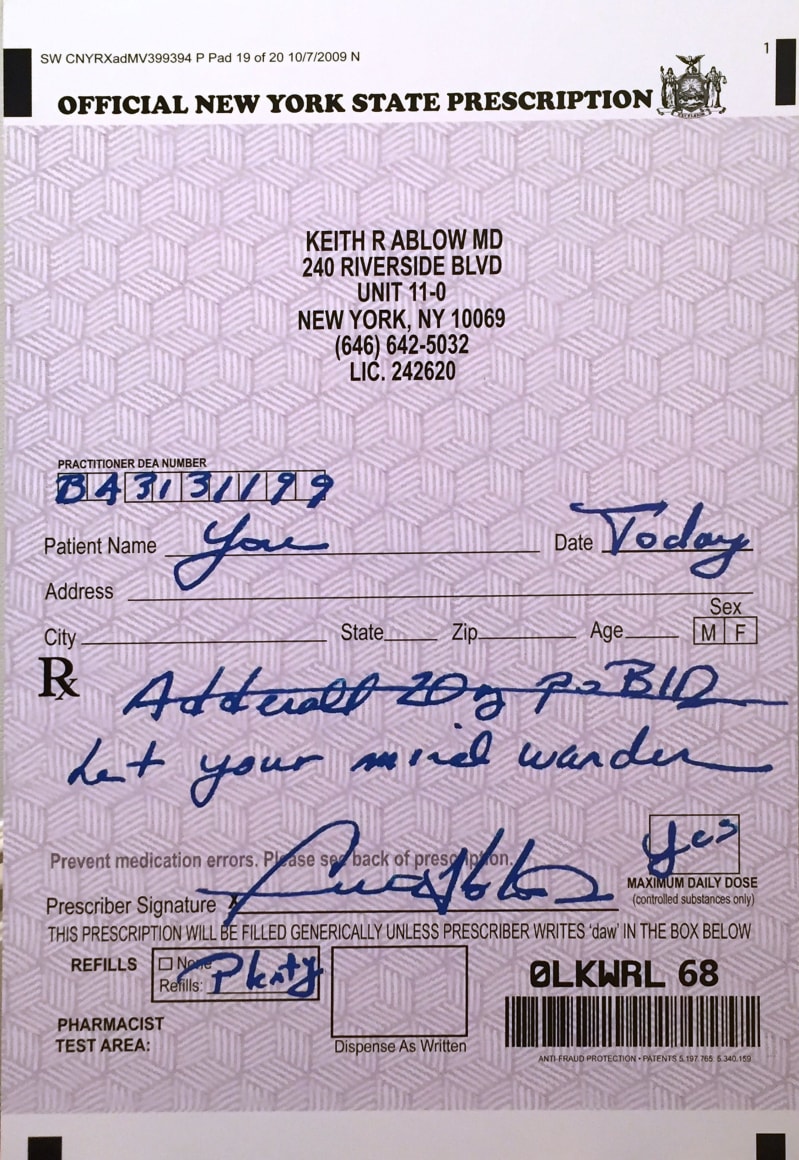 SW CNYRXadMV399394 P Pad 19 of 20 10/7/2009 N
1
OFFICIAL NEW YORK STATE PRESCRIPTION
EXCELSIOR
KEITH R ABLOW MD
240 RIVERSIDE BLVD
UNIT 11-0
NEW YORK, NY 10069
(646) 642-5032
LIC. 242620
PRACTITIONER DEA NUMBER
BA3131199
Patient Name You Date Today
Address
Sex
City State Zip Age M F
Rx Adderall 20mg po BID
Let your mind wander
Yes
Prevent medication errors. Please see back of prescription.
MAXIMUM DAILY DOSE
(controlled substances only)
Prescriber Signature X
THIS PRESCRIPTION WILL BE FILLED GENERICALLY UNLESS PRESCRIBER WRITES 'daw' IN THE BOX BELOW
REFILLS None
Refills: Plenty
0LKWRL 68
PHARMACIST
TEST AREA:
Dispense As Written
ANTI-FRAUD PROTECTION • PATENTS 5,197,765 5,340,159